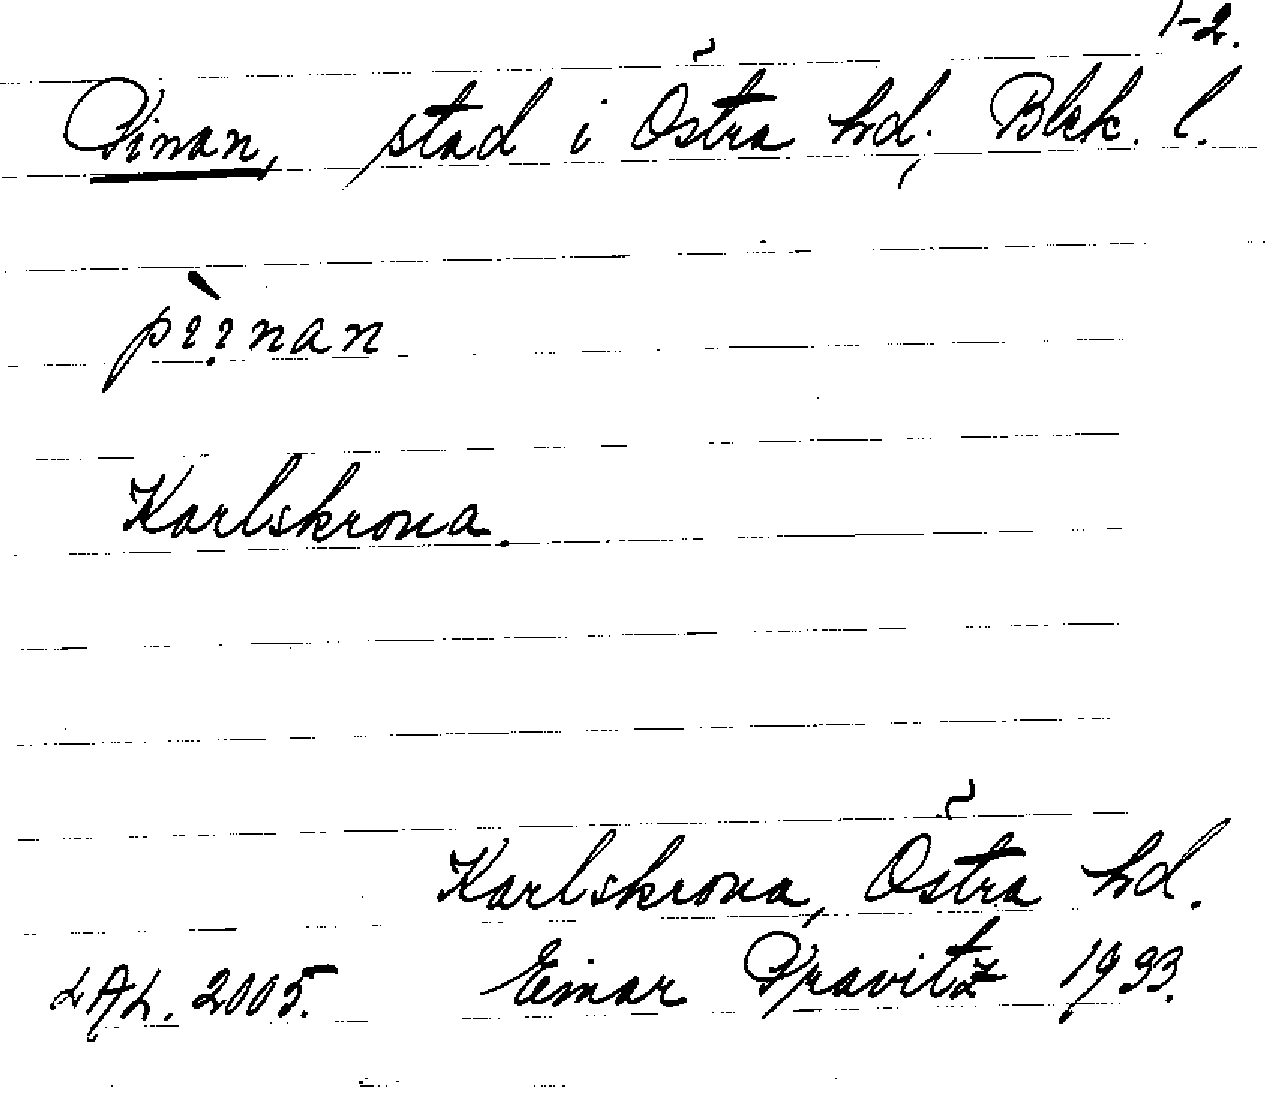 1-2.
Pinan, stad i Östra hd, Blek. l.
Karlskrona.
Karlskrona, Östra hd.
LAL. 2005. Einar Pravitz 1933.